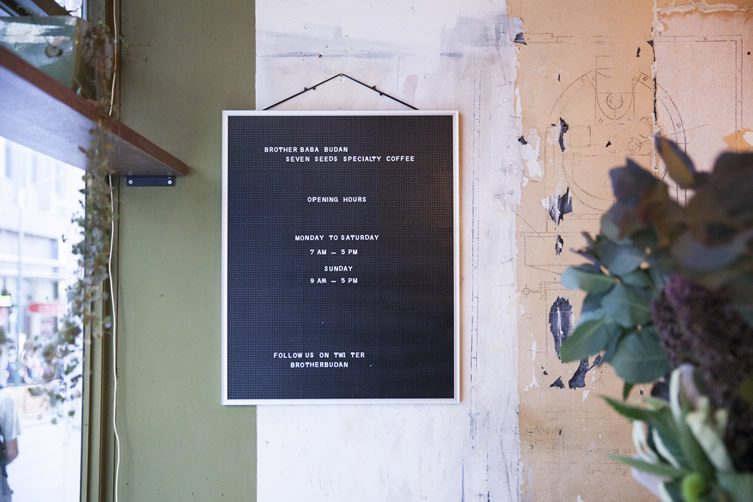 BROTHER BABA BUDAN
SEVEN SEEDS SPECIALTY COFFEE
OPENING HOURS
MONDAY TO SATURDAY
7 AM – 5 PM
SUNDAY
9 AM – 5 PM
FOLLOW US ON TWI TER
BROTHERBUDAN